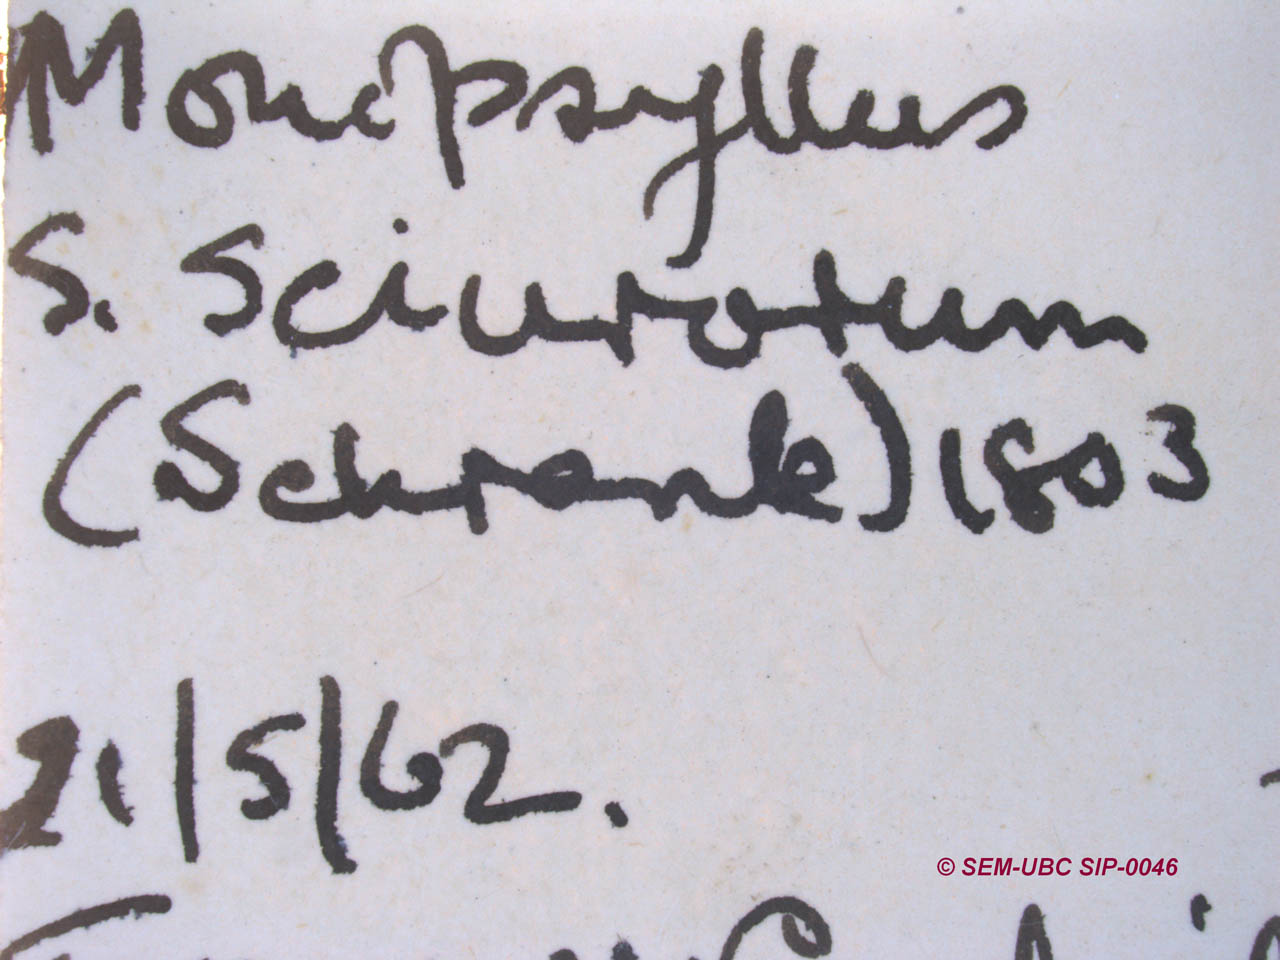 Monopsyllus
S. Sciurorum
(Schrank) 1803
21/5/62.
© SEM-UBC SIP-0046